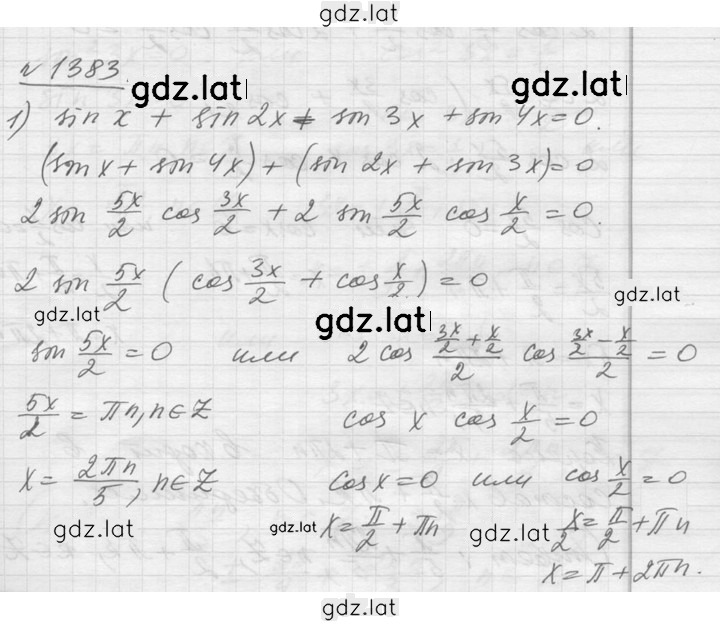 gdz.lat
№1383.
gdz.lat gdz.lat
1) sin x + sin 2x + sin 3x + sin 4x = 0.
(sin x + sin 4x) + (sin 2x + sin 3x) = 0
2 sin 5x/2 cos 3x/2 + 2 sin 5x/2 cos x/2 = 0.
2 sin 5x/2 (cos 3x/2 + cos x/2) = 0
gdz.lat gdz.lat gdz.lat
sin 5x/2 = 0 или 2 cos (3x/2 + x/2)/2 cos (3x/2 - x/2)/2 = 0
5x/2 = πn, n∈Z cos x cos x/2 = 0
x = 2πn/5, n∈Z cos x = 0 или cos x/2 = 0
gdz.lat gdz.lat x = π/2 + πn gdz.lat x/2 = π/2 + πn
x = π + 2πn.
gdz.lat